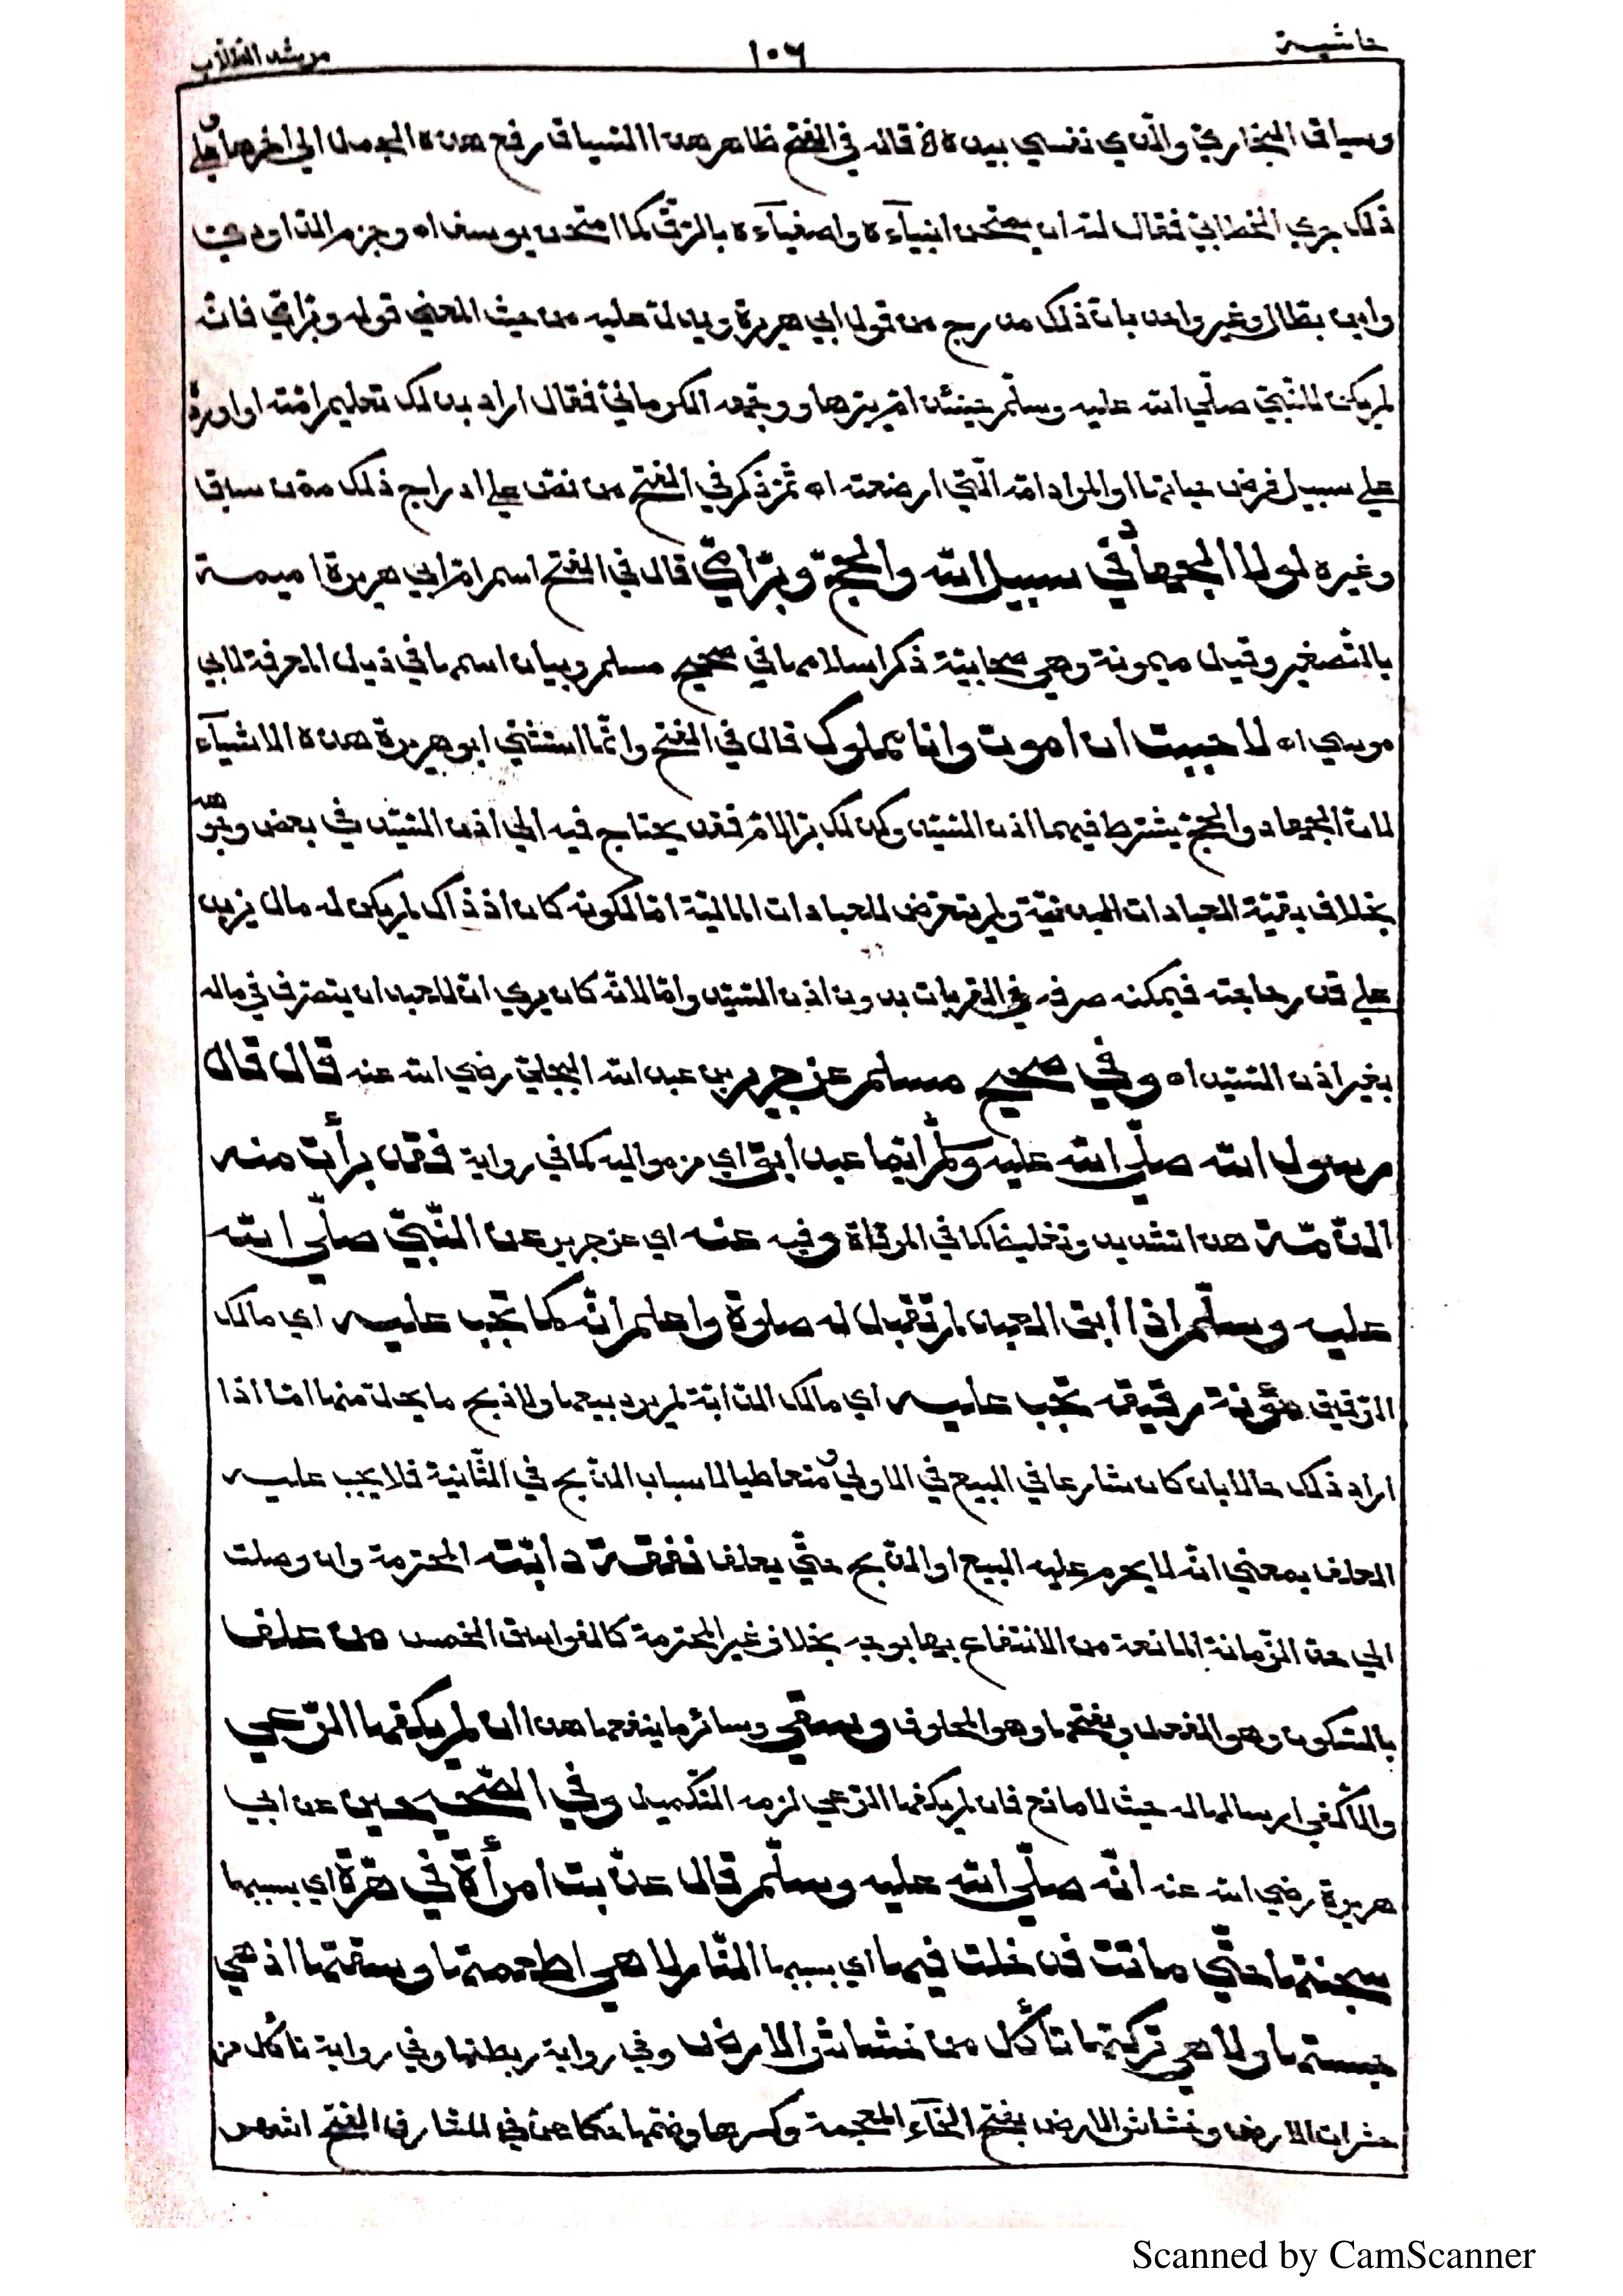 حاشية ١٠٦ مرشد الطلاب
وسياق البخاري والذي نفسي بيده قاله في الفتح ظاهر هذا السياق رفع هذه الجمل الى اخرها وعلى
ذلك جرى الخطابي فقال لله ان يمتحن انبيآءه واصفيآءه بالرق كما امتحن يوسف اه وجزم الداودي
وابن بطال وغير واحد بان ذلك مدرج من قول ابي هريرة ويدل عليه من حيث المعنى قوله وبر امي فانه
لم يكن للنبي صلى الله عليه وسلم حينئذ ام يبرها ووجهه الكرماني فقال اراد بذلك تعليم امته او اورده
على سبيل فرض حياتها او المراد امه التي ارضعته اه ثم ذكر في الفتح من نص على ادراج ذلك مدن ساق
وغيره لولا الجهاد في سبيل الله والحج وبر امي قال في الفتح اسم ام ابي هريرة اميمة
بالتصغير وقيل ميمونة وهي صحابية ذكر اسلامها في صحيح مسلم وبيان اسمها في ذيل المعرفة لابي
موسى اه لاحببت ان اموت وانا مملوك قال في الفتح وانما استثنى ابو هريرة هذه الاشيآء
لان الجهاد والحج يشترط فيهما اذن السيد وكذلك بر الام فقد يحتاج فيه الى اذن السيد في بعض وجوهه
بخلاف بقية العبادات البدنية ولم يتعرض للعبادات المالية اما لكونه كان اذ ذاك لم يكن له مال يزيد
على قدر حاجته فيمكنه صرفه في القربات بدون اذن السيد واما لانه كان يرى ان للعبد ان يتصرف في ماله
بغير اذن السيد اه وفي صحيح مسلم عن جرير بن عبد الله البجلي رضي الله عنه قال قال
رسول الله صلى الله عليه وسلم ايما عبد ابق اي من مواليه كما في رواية فقد برأت منه
الذمة هذا تشديد وتغليظ كما في المرقاة وفيه عنه اي عن جرير عن النبي صلى الله
عليه وسلم اذا ابق العبد لم تقبل له صلوة واعلم انه كما تجب عليه اي مالك
الرقيق مؤنة رقيقه تجب عليه اي مالك الدابة لم يرد بيعها ولا ذبح ما يحل منها اما اذا
اراد ذلك حالا بان كان شارعا في البيع في الاولى ومتعاطيا لاسباب الذبح في الثانية فلا يجب عليه
العلف بمعنى انه لا يحرم عليه البيع او الذبح حتى يعلف نفقة دابته المحترمة وان وصلت
الى حد الزمانة المانعة من الانتفاع بها بوجه بخلاف غير المحترمة كالفواسق الخمس من علف
بالسكون وهو الفعل وبفتحها وهو المعلوف وسقي وسائر ما ينفعها هذا ان لم يكفها الرعي
والا كفى ارسالها له حيث لا مانع فان لم يكفها الرعي لزمه التكميل وفي الصحيحين عن ابي
هريرة رضي الله عنه انه صلى الله عليه وسلم قال عذبت امرأة في هرة اي بسببها
سجنتها حتى ماتت فدخلت فيها اي بسببها النار لا هي اطعمتها وسقتها اذ هي
حبستها ولا هي تركتها تأكل من خشاش الارض وفي رواية ربطتها وفي رواية تاكل من
حشرات الارض وخشاش الارض بفتح الخآء المعجمة وكسرها وضمها حكاهن في المشارق الفتح اشهر
Scanned by CamScanner